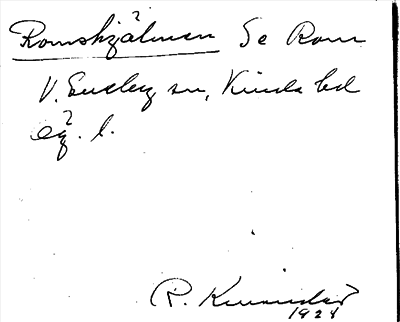 Romshjälmen Se Rom
V. Eneby sn, Kinda hd
Ög. l.
R. Kinander
1924